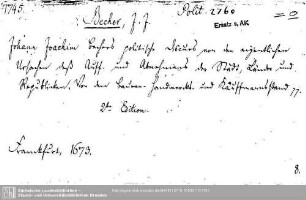 1745.
Becher, J. J.
Polit. 2760
Ersatz s. AK
Johann Joachim Bechers politische Discurs von den eigentlichen
Ursachen deß Auff- und Abnehmens der Städt, Länder und
Republicken. Von dem Bauren- Handwercks- und Kauffmannsstand
2te Edition.
Frankfurt, 1673.
8.
Sächsische Landesbibliothek -
Staats- und Universitätsbibliothek Dresden